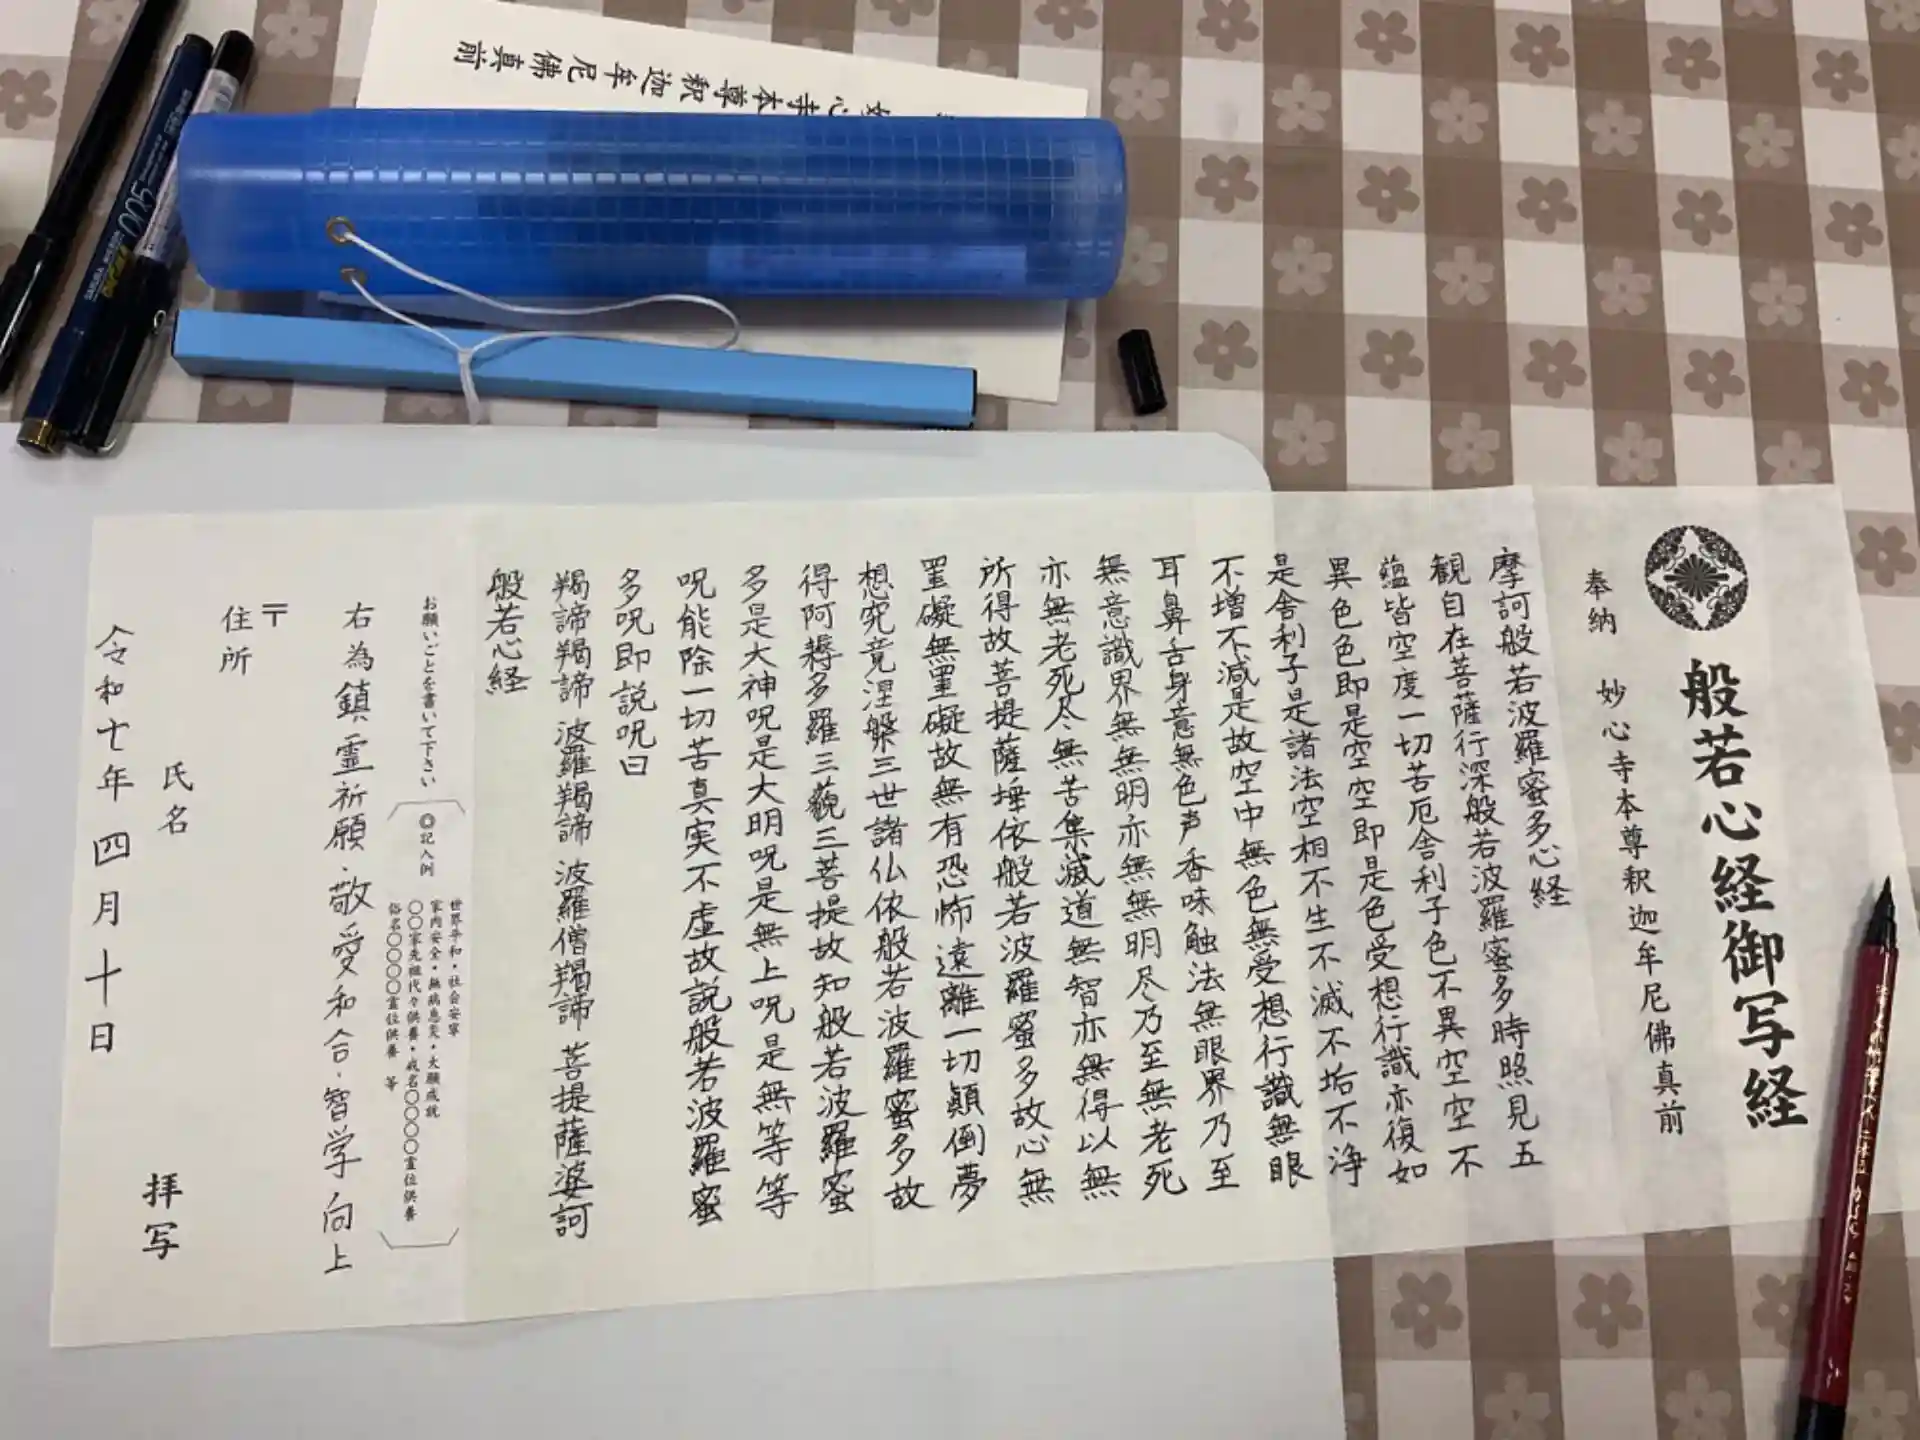 般若心経御写経
奉納　妙心寺本尊釈迦牟尼佛真前
摩訶般若波羅蜜多心経
観自在菩薩行深般若波羅蜜多時照見五
蘊皆空度一切苦厄舎利子色不異空空不
異色色即是空空即是色受想行識亦復如
是舎利子是諸法空相不生不滅不垢不浄
不増不減是故空中無色無受想行識無眼
耳鼻舌身意無色声香味触法無眼界乃至
無意識界無無明亦無無明尽乃至無老死
亦無老死尽無苦集滅道無智亦無得以無
所得故菩提薩埵依般若波羅蜜多故心無
罣礙無罣礙故無有恐怖遠離一切顛倒夢
想究竟涅槃三世諸仏依般若波羅蜜多故
得阿耨多羅三藐三菩提故知般若波羅蜜
多是大神呪是大明呪是無上呪是無等等
呪能除一切苦真実不虚故説般若波羅蜜
多呪即説呪曰
羯諦羯諦 波羅羯諦 波羅僧羯諦 菩提薩婆訶
般若心経
お願いごとを書いて下さい
記入例
世界平和・社会安寧
家内安全・無病息災・大願成就
〇〇家先祖代々供養・戒名〇〇〇〇霊位供養
俗名〇〇〇〇霊位供養　等
右為鎮霊祈願・敬愛和合・智学向上
〒
住所
氏名
拝写
令和七年四月十日
心寺本尊釈迦牟尼佛真前
SAKURA
005